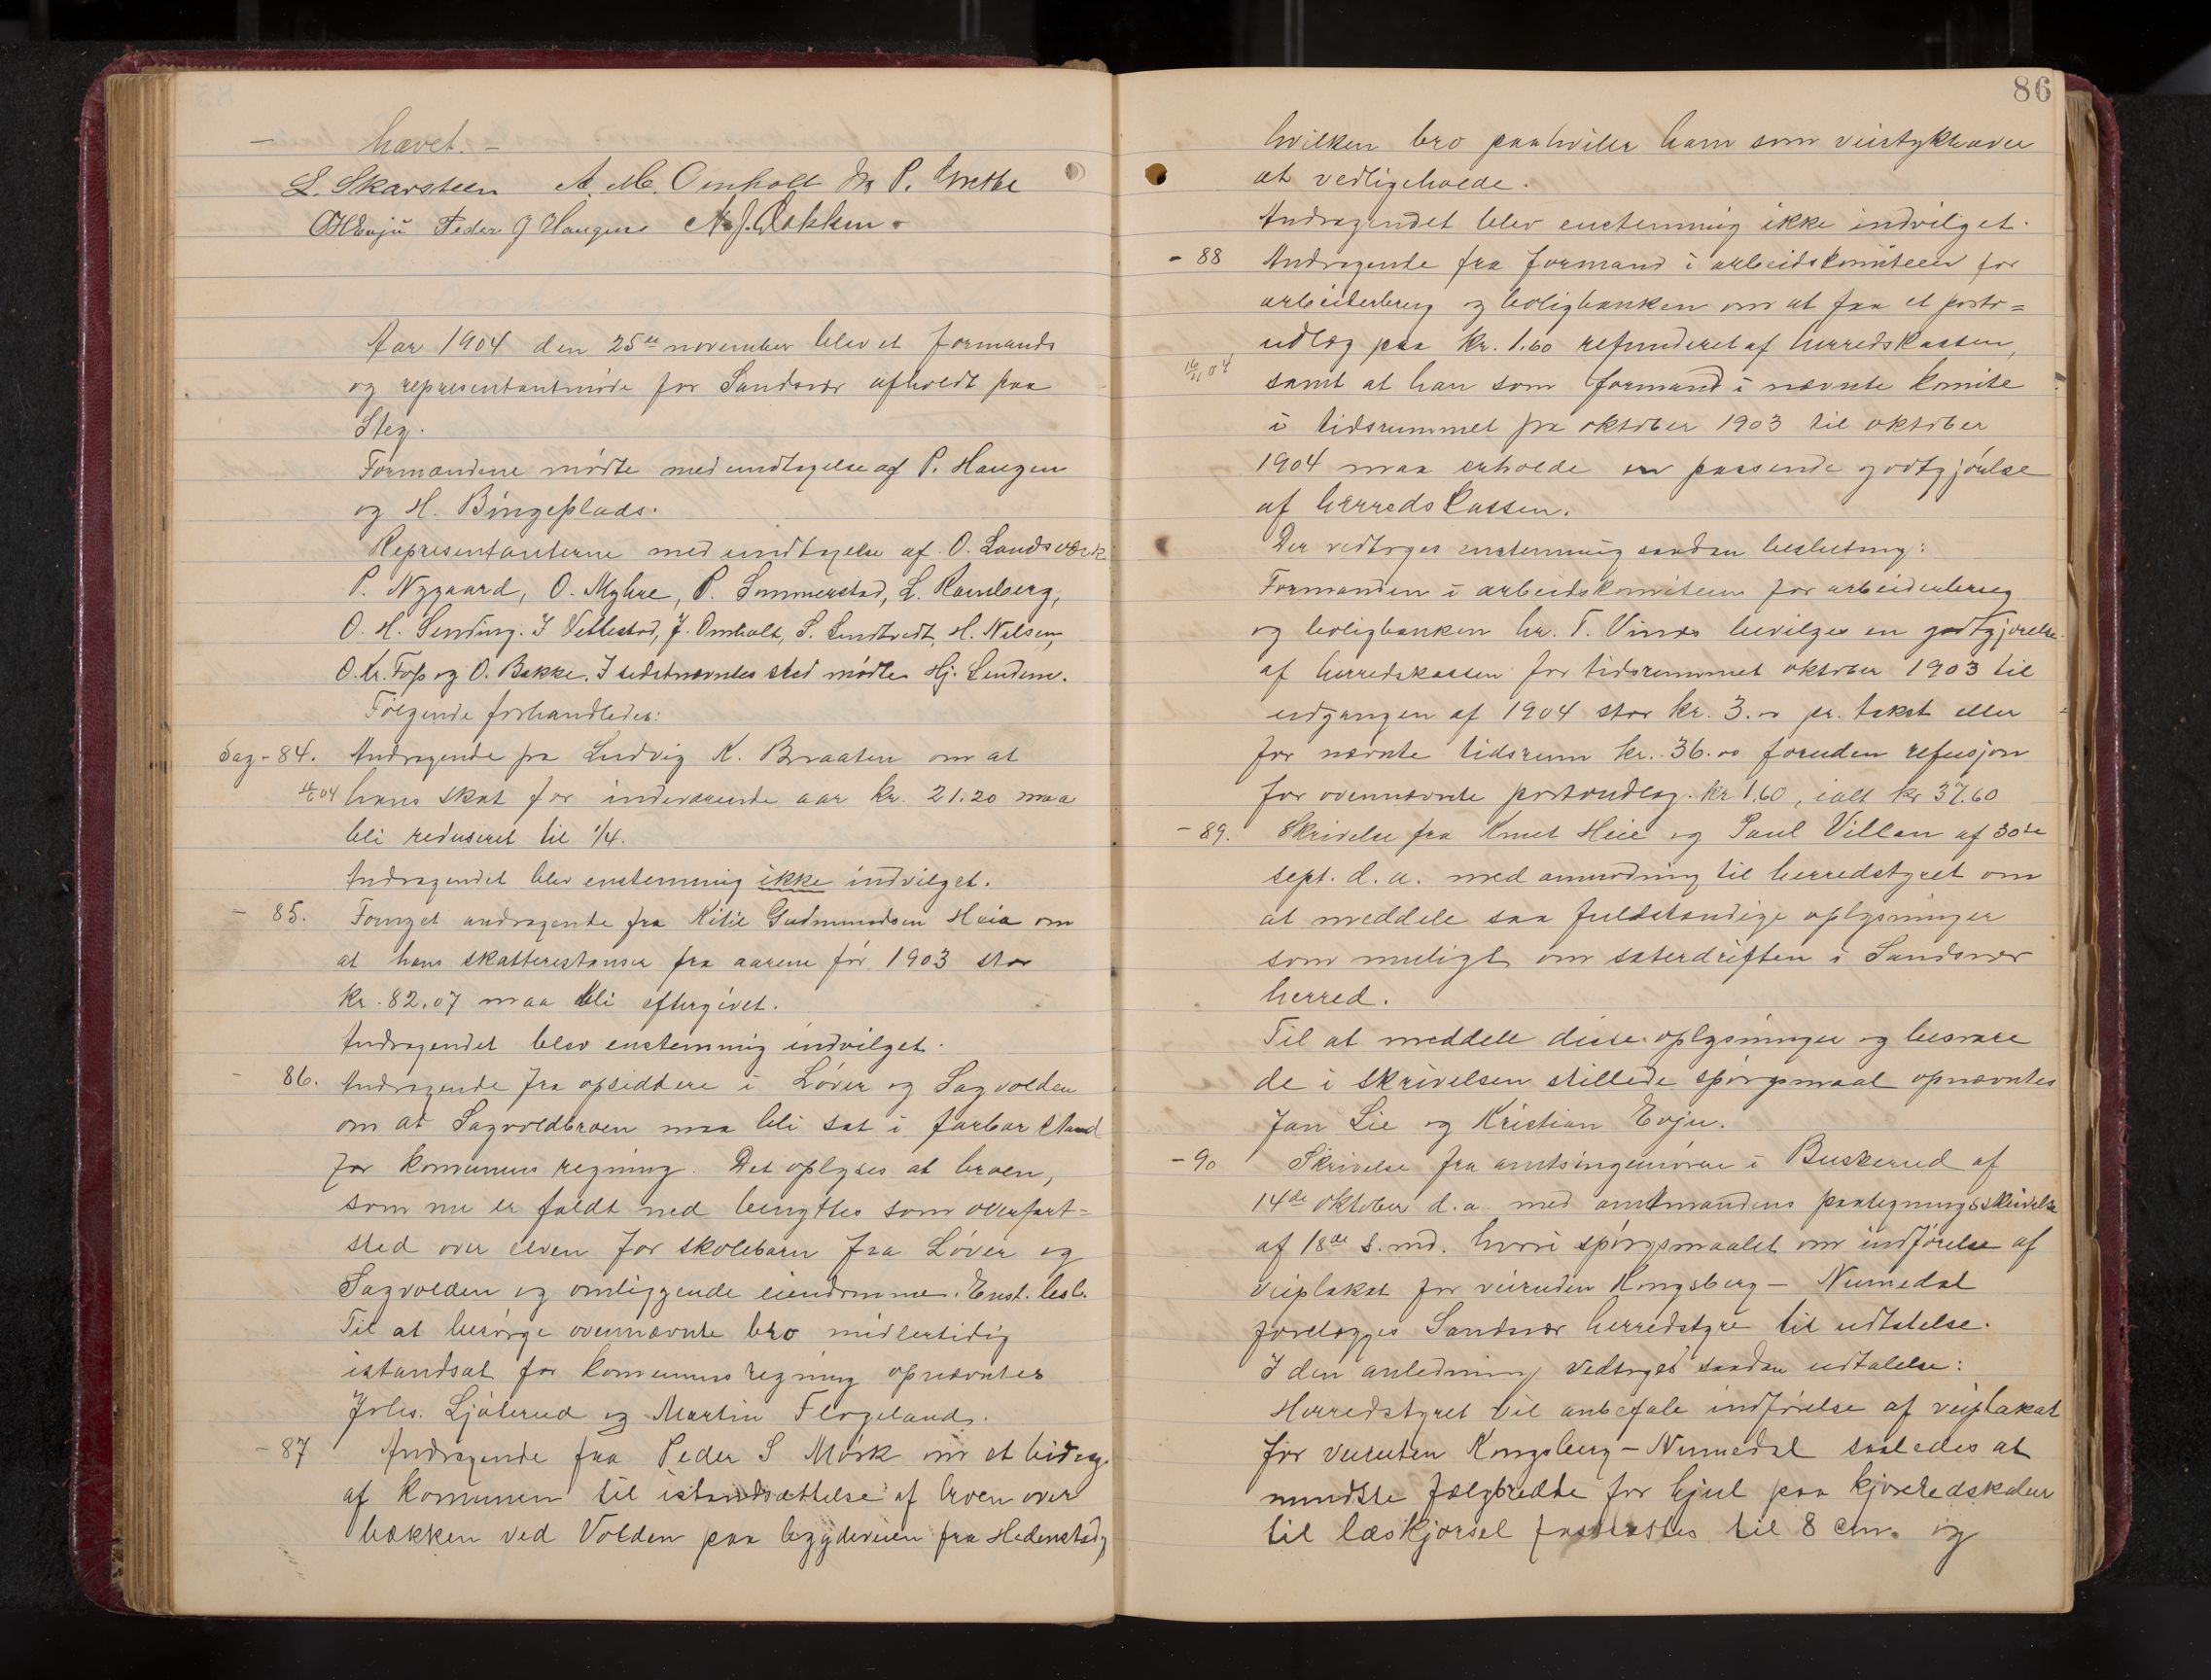 hævet. –
L. Skarsteen A. M. Omholt P. Grette
OHEvju Peder J Haugen A. J. Bakken
Aar 1904 den 25de november blev et formands
og representantmøde for Sandsvær afholdt paa
Steg.
Formændene mødte med undtagelse af P. Haugen
og H. Bingeplads.
Representanterne med undtagelse af O. Landsværk
P. Nygaard, O. Myhre, P. Sommerstad, L. Ramberg,
O. H. Sending. I Vettestad, J. Omholt, S. Sundtvedt, H. Nilsen,
O. Kr. Fos og O. Bakke. I sidstnævntes sted mødte Hj. Lindem.
Følgende forhandledes:
Sag - 84. Andragende fra Ludvig K. Braaten om at
hans skat for indeværende aar kr. 21.20 maa
bli reduseret til 1/4.
Andragendet blev enstemmig ikke indvilget.
– 85. Fornyet andragende fra Kitil Gudmundsen Heia om
at hans skatterestanser fra aarene før 1903 stor
kr. 82.07 maa bli eftergivet.
Andragendet blev enstemmig indvilget.
– 86. Andragende fra opsiddere i Løver og Sagvolden
om at Sagvoldbroen maa bli sat i farbar stand
for komunens regning. Det oplyses at broen,
som nu er faldt ned benyttes som overfart-
sted over elven for skolebarn fra Løver og
Sagvolden og omliggende eiendomme. Enst. besl.
Til at besørge ovennævnte bro midlertidig
istandsat for komunens regning opnævntes
Johs. Ljøterud og Martin Flogeland.
– 87 Andragende fra Peder S Mørk om et bidrag
af komunen til istandsættelse af broen over
bækken ved Volden paa bygdeveien fra Hedenstad,
86
hvilken bro paahviler ham som veistykhaver
at vedligeholde.
Andragendet blev enstemmig ikke indvilget.
– 88 Andragende fra formand i arbeidskomiteen for
arbeiderbrug og boligbanken om at faa et porto=
udlæg paa kr. 1.60 refunderet af herredskassen,
16/11 04 samt at han som formand i nævnte komite
i tidsrummet fra oktober 1903 til oktober
1904 maa erholde en passende godtgjørelse
af herredskassen.
Der vedtoges enstemmig saadan beslutning:
Formanden i arbeidskomiteen for arbeiderbrug
og boligbanken hr. T. Vinæs bevilges en godtgjørelse
af herredskassen for tidsrummet oktober 1903 til
udgangen af 1904 stor kr. 3.00 pr. takst eller
for nævnte tidsrum kr. 36.00 foruden refusjon
for ovennævnte portoudlæg. kr 1.60, ialt kr 37.60
– 89. Skrivelse fra Knut Heie og Paul Villan af 30te
sept. d. a. med anmodning til herredstyret om
at meddele saa fuldstændige oplysninger
som muligt om sæterdriften i Sandsvær
herred.
Til at meddele disse oplysninger og besvare
de i skrivelsen stillede spørgsmaal opnævntes
Jan Lie og Kristian Evju.
– 90 Skrivelse fra amtsingeniøren i Buskerud af
14de oktober d. a. med amtmandens paategningsskrivelse
af 18de s. md. hvori spørgsmaalet om indførelse af
veiplakat for veiruden Kongsberg – Numedal
forelægges Sandsvær herredstyre til udtalelse.
I den anledning vedtoges saadan udtalelse:
Herredstyret vil anbefale indførelse af veiplakat
for veiruten Kongsberg – Numedal saaledes at
mindste fælgbredde for hjul paa kjøreredskaber
til læskjørsel fastsættes til 8 cm. og